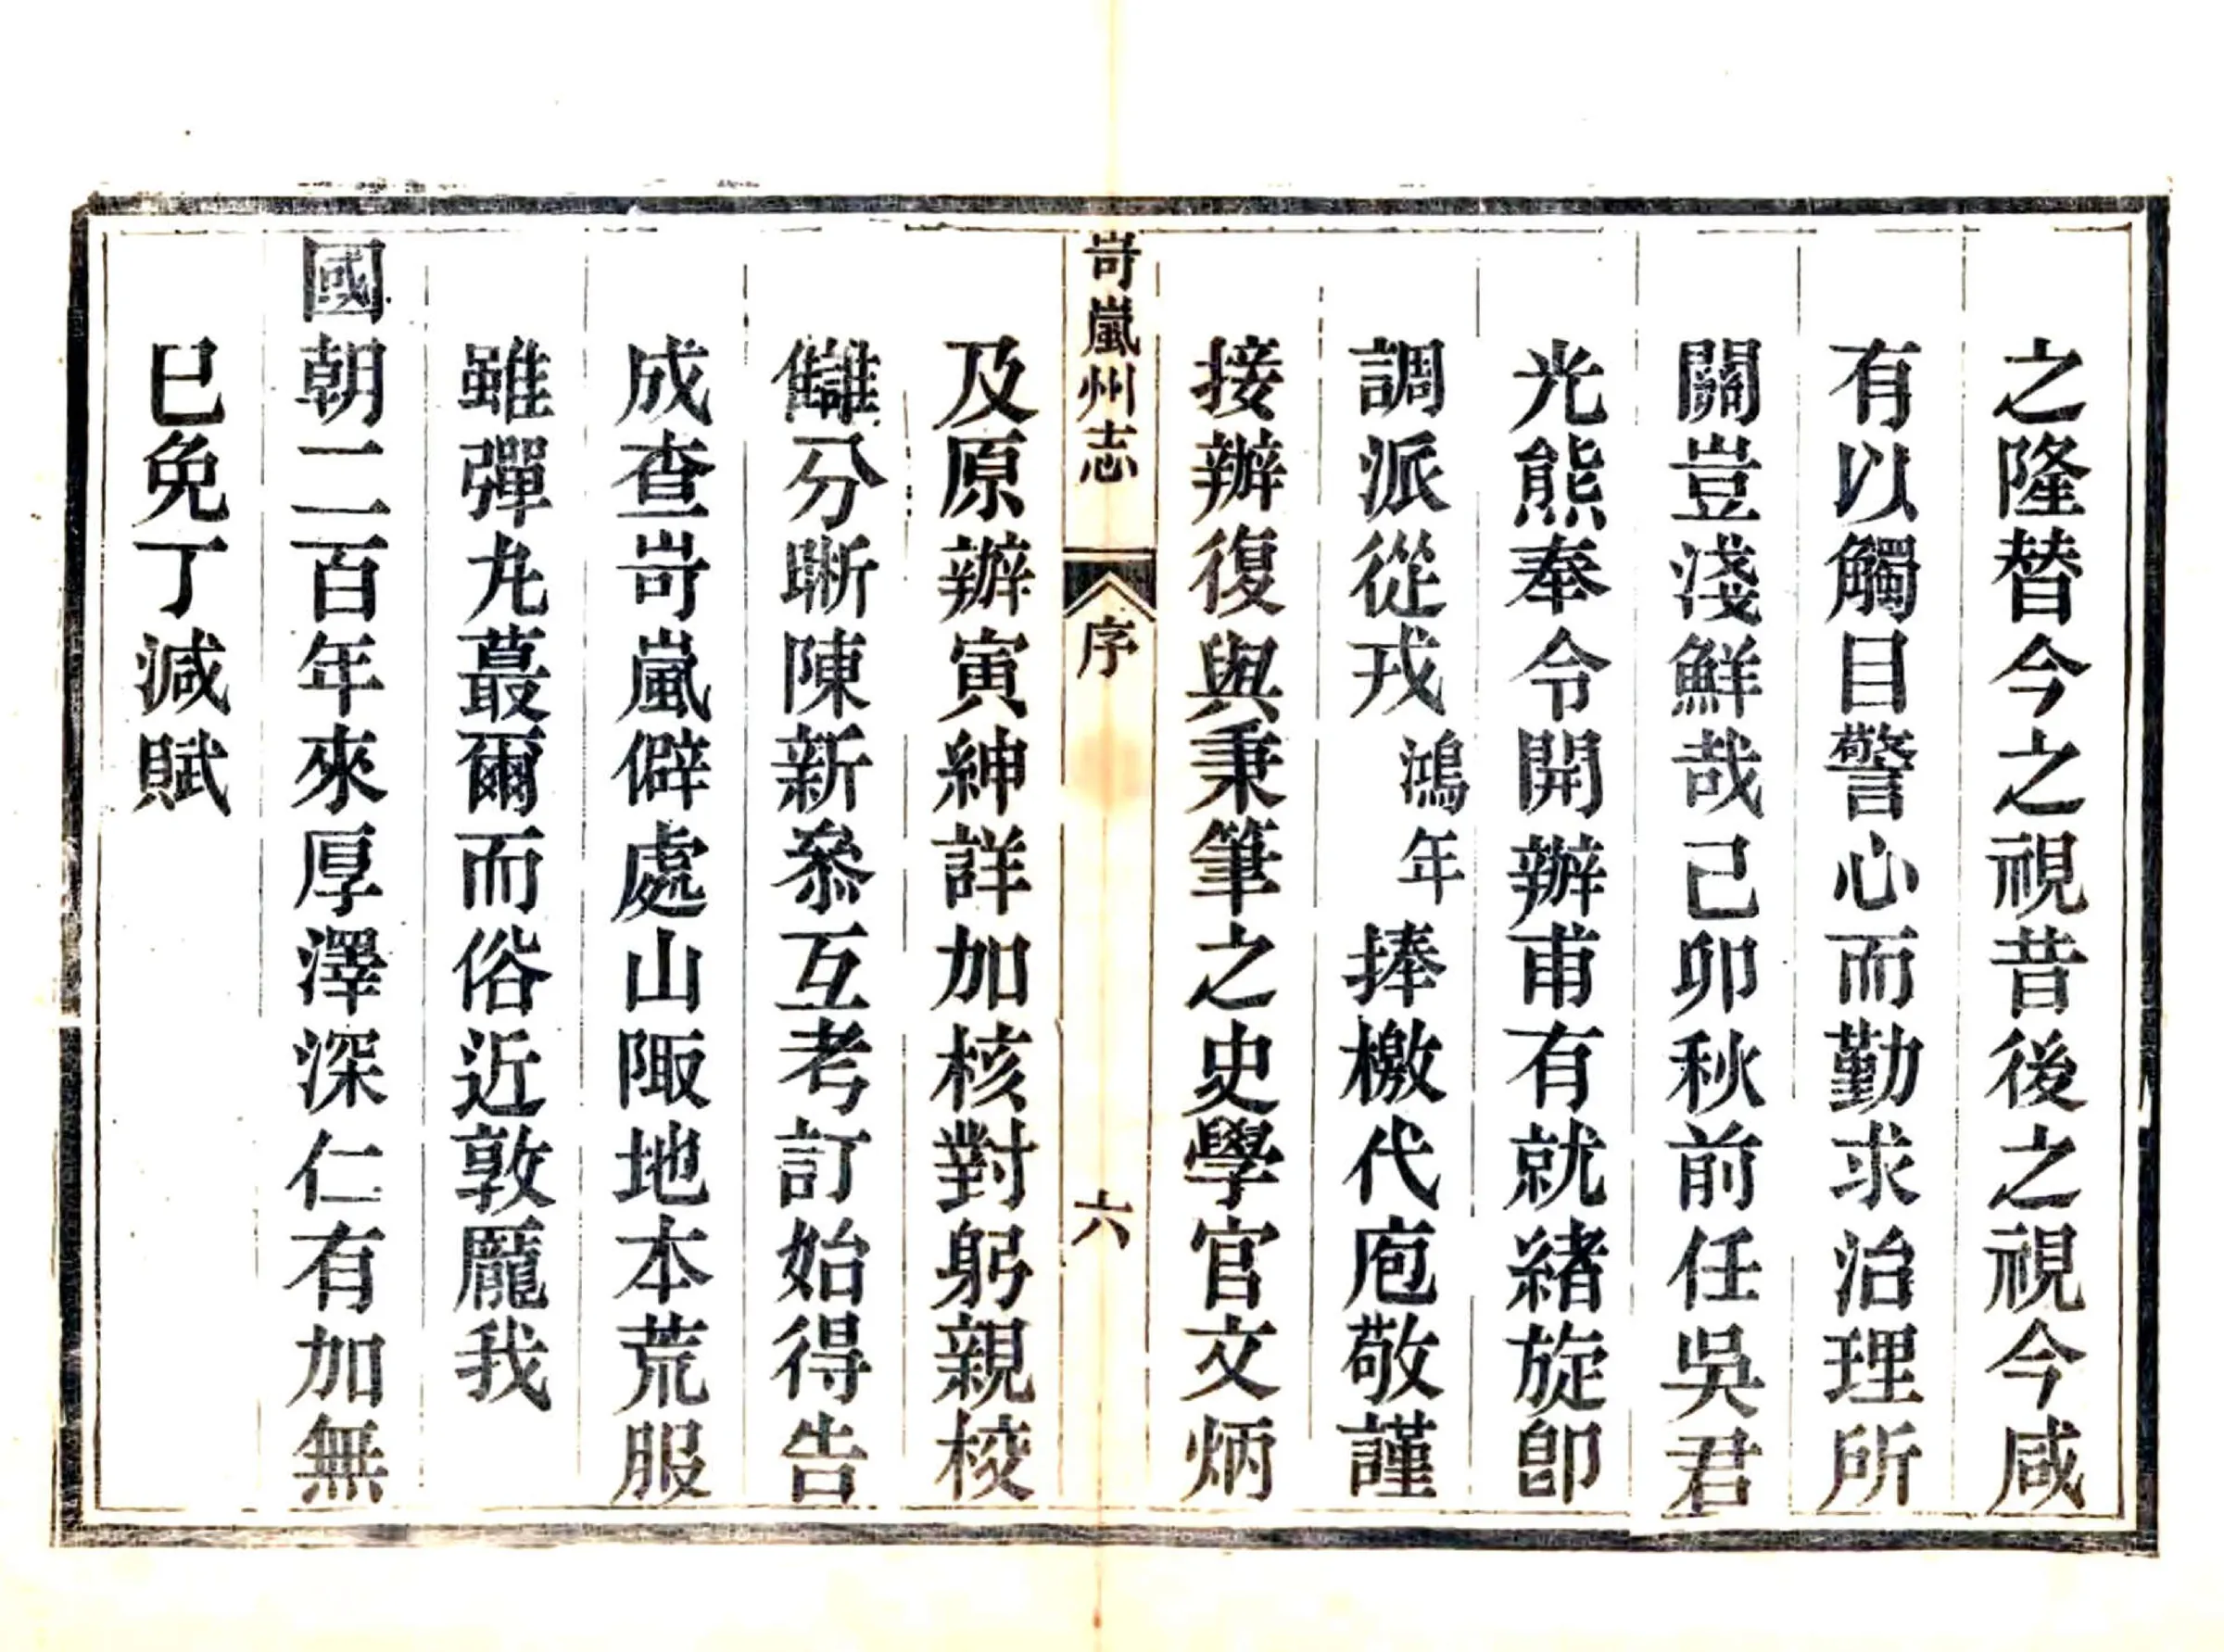 之隆替今之視昔後之視今咸
有以觸目警心而勤求治理所
關豈淺鮮哉己卯秋前任吳君
光熊奉令開辦甫有就緒旋卽
調派從戎鴻年捧檄代庖敬謹
接辦復與秉筆之史學官文炳
岢嵐州志
序
六
及原辦寅紳詳加核對躬親校
讎分晰陳新叅互考訂始得告
成查岢嵐僻處山陬地本荒服
雖彈丸蕞爾而俗近敦龐我
國朝二百年來厚澤深仁有加無
已免丁減賦